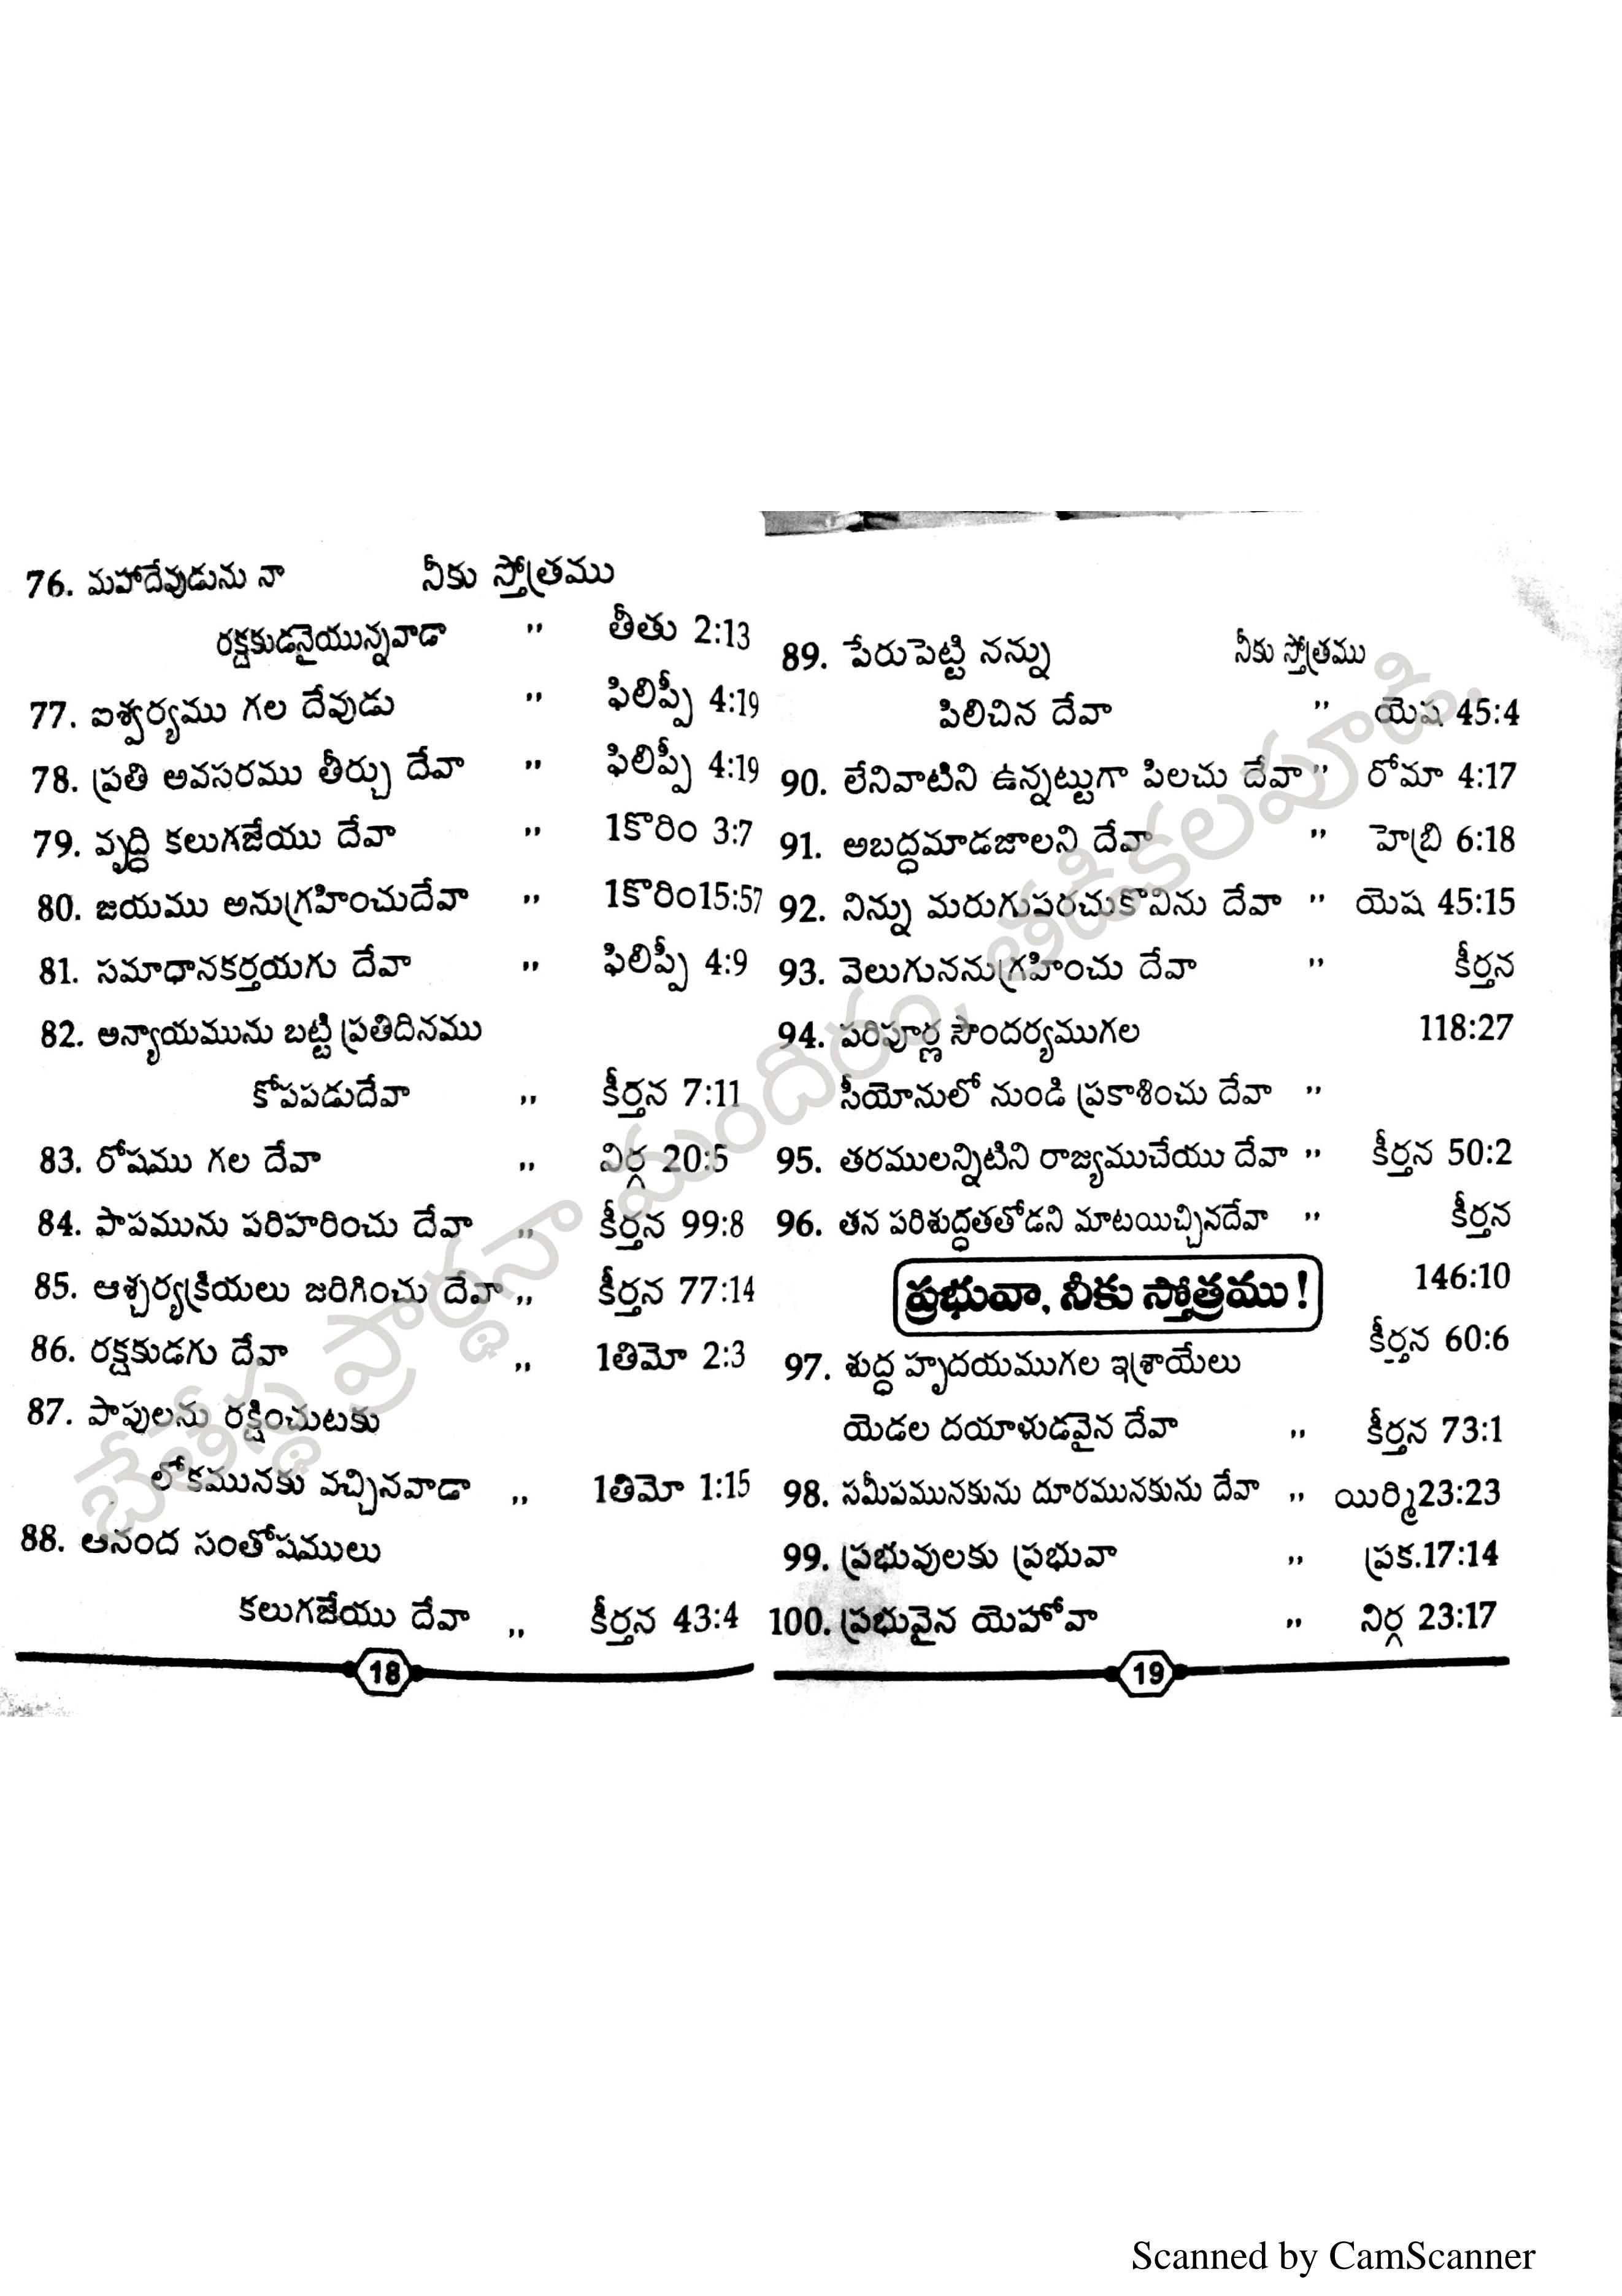 76. మహాదేవుడును నా నీకు స్తోత్రము
రక్షకుడనైయున్నవాడా ,, తీతు 2:13
77. ఐశ్వర్యము గల దేవుడు ,, ఫిలిప్పీ 4:19
78. ప్రతి అవసరము తీర్చు దేవా ,, ఫిలిప్పీ 4:19
79. వృద్ధి కలుగజేయు దేవా ,, 1కొరిం 3:7
80. జయము అనుగ్రహించుదేవా ,, 1కొరిం15:57
81. సమాధానకర్తయగు దేవా ,, ఫిలిప్పీ 4:9
82. అన్యాయమును బట్టి ప్రతిదినము
కోపపడుదేవా ,, కీర్తన 7:11
83. రోషము గల దేవా ,, నిర్గ 20:5
84. పాపమును పరిహరించు దేవా ,, కీర్తన 99:8
85. ఆశ్చర్యక్రియలు జరిగించు దేవా ,, కీర్తన 77:14
86. రక్షకుడగు దేవా ,, 1తిమో 2:3
87. పాపులను రక్షించుటకు
లోకమునకు వచ్చినవాడా ,, 1తిమో 1:15
88. ఆనంద సంతోషములు
కలుగజేయు దేవా ,, కీర్తన 43:4
18
89. పేరుపెట్టి నన్ను నీకు స్తోత్రము
పిలిచిన దేవా ,, యెష 45:4
90. లేనివాటిని ఉన్నట్టుగా పిలచు దేవా ,, రోమా 4:17
91. అబద్ధమాడజాలని దేవా ,, హెబ్రి 6:18
92. నిన్ను మరుగుపరచుకొనిను దేవా ,, యెష 45:15
93. వెలుగుననుగ్రహించు దేవా ,, కీర్తన
94. పరిపూర్ణ సౌందర్యముగల 118:27
సీయోనులో నుండి ప్రకాశించు దేవా ,,
95. తరములన్నిటిని రాజ్యముచేయు దేవా ,, కీర్తన 50:2
96. తన పరిశుద్ధతతోడని మాటయిచ్చినదేవా ,, కీర్తన
ప్రభువా, నీకు స్తోత్రము! 146:10
కీర్తన 60:6
97. శుద్ధ హృదయముగల ఇశ్రాయేలు
యెడల దయాళుడవైన దేవా ,, కీర్తన 73:1
98. సమీపమునకును దూరమునకును దేవా ,, యిర్మి23:23
99. ప్రభువులకు ప్రభువా ,, ప్రక.17:14
100. ప్రభువైన యెహోవా ,, నిర్గ 23:17
19
బేతేస్థ ప్రార్థనా మందిరం, తాడికలపూడి.
Scanned by CamScanner